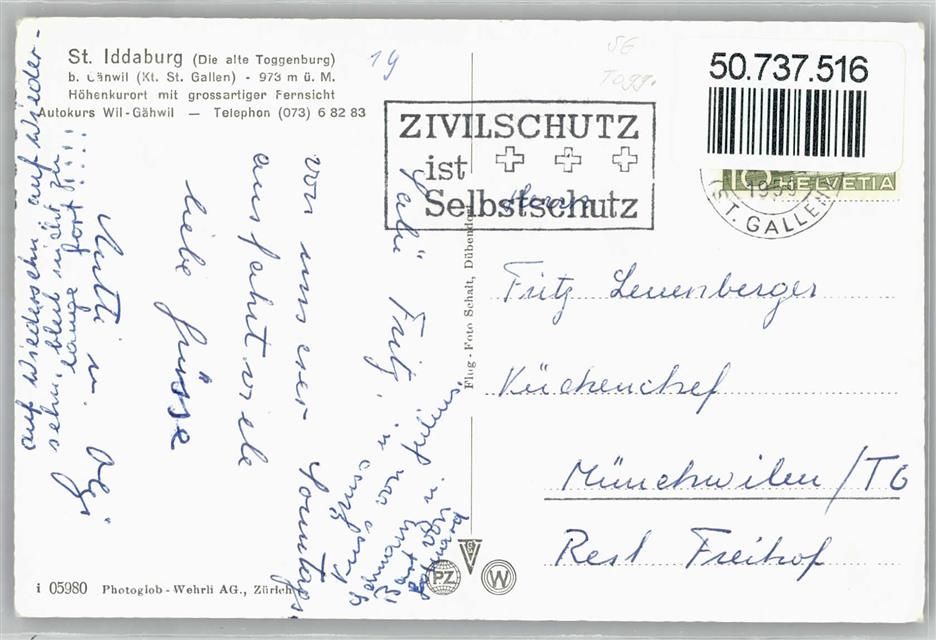 St. Iddaburg (Die alte Toggenburg)
b. Gänwil (Kt. St. Gallen) - 973 m ü. M.
Höhenkurort mit grossartiger Fernsicht
Autokurs Wil-Gähwil — Telephon (073) 6 82 83
19
SG
Togg.
50.737.516
ZIVILSCHUTZ
ist
Selbstschutz
10 HELVETIA
1959
ST. GALLEN
Herrn
Fritz Leuenberger
Küchenchef
Münchwilen/TG
Rest Freihof
Flug-Foto Schalt, Dübendorf
Salü Fritz,
von unserer Sonntags
ausfahrt viele
liebe Grüsse
auf Wiedersehn auf Wieder-
sehn, bleib nicht zu
lange fort!!!!
PZ
W
i 05980 Photoglob-Wehrli AG., Zürich